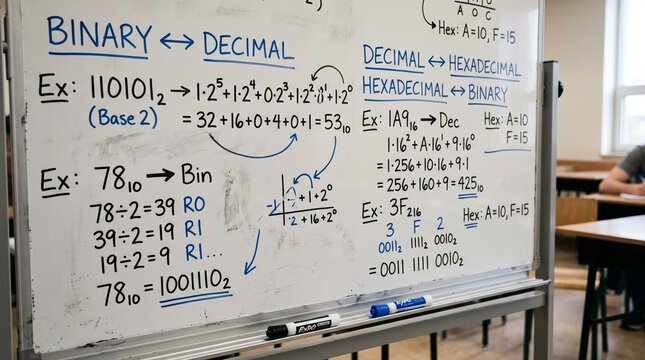 BINARY ↔ DECIMAL
Ex: 110101₂ → 1·2⁵+1·2⁴+0·2³+1·2²·0¹+1·2⁰
(Base 2) = 32+16+0+4+0+1=53₁₀
Ex: 78₁₀ → Bin
78÷2=39 R0
39÷2=19 R1
19÷2=9 R1...
78₁₀ = 1001110₂
+1+2⁰
2+16+2⁰
A O C
Hex: A=10, F=15
DECIMAL ↔ HEXADECIMAL
HEXADECIMAL ↔ BINARY
Ex: 1A9₁₆ → Dec
Hex: A=10
F=15
1·16²+A·16¹+9·16⁰
=1·256+10·16+9·1
=256+160+9=425₁₀
Ex: 3F₂₁₆
Hex: A=10, F=15
3 F 2
0011₂ 1111₂ 0010₂
= 0011 1111 0010₂
EXPO
EXPO